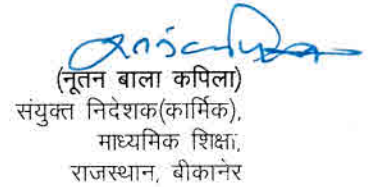 (नूतन बाला कपिला)
संयुक्त निदेशक(कार्मिक),
माध्यमिक शिक्षा,
राजस्थान, बीकानेर